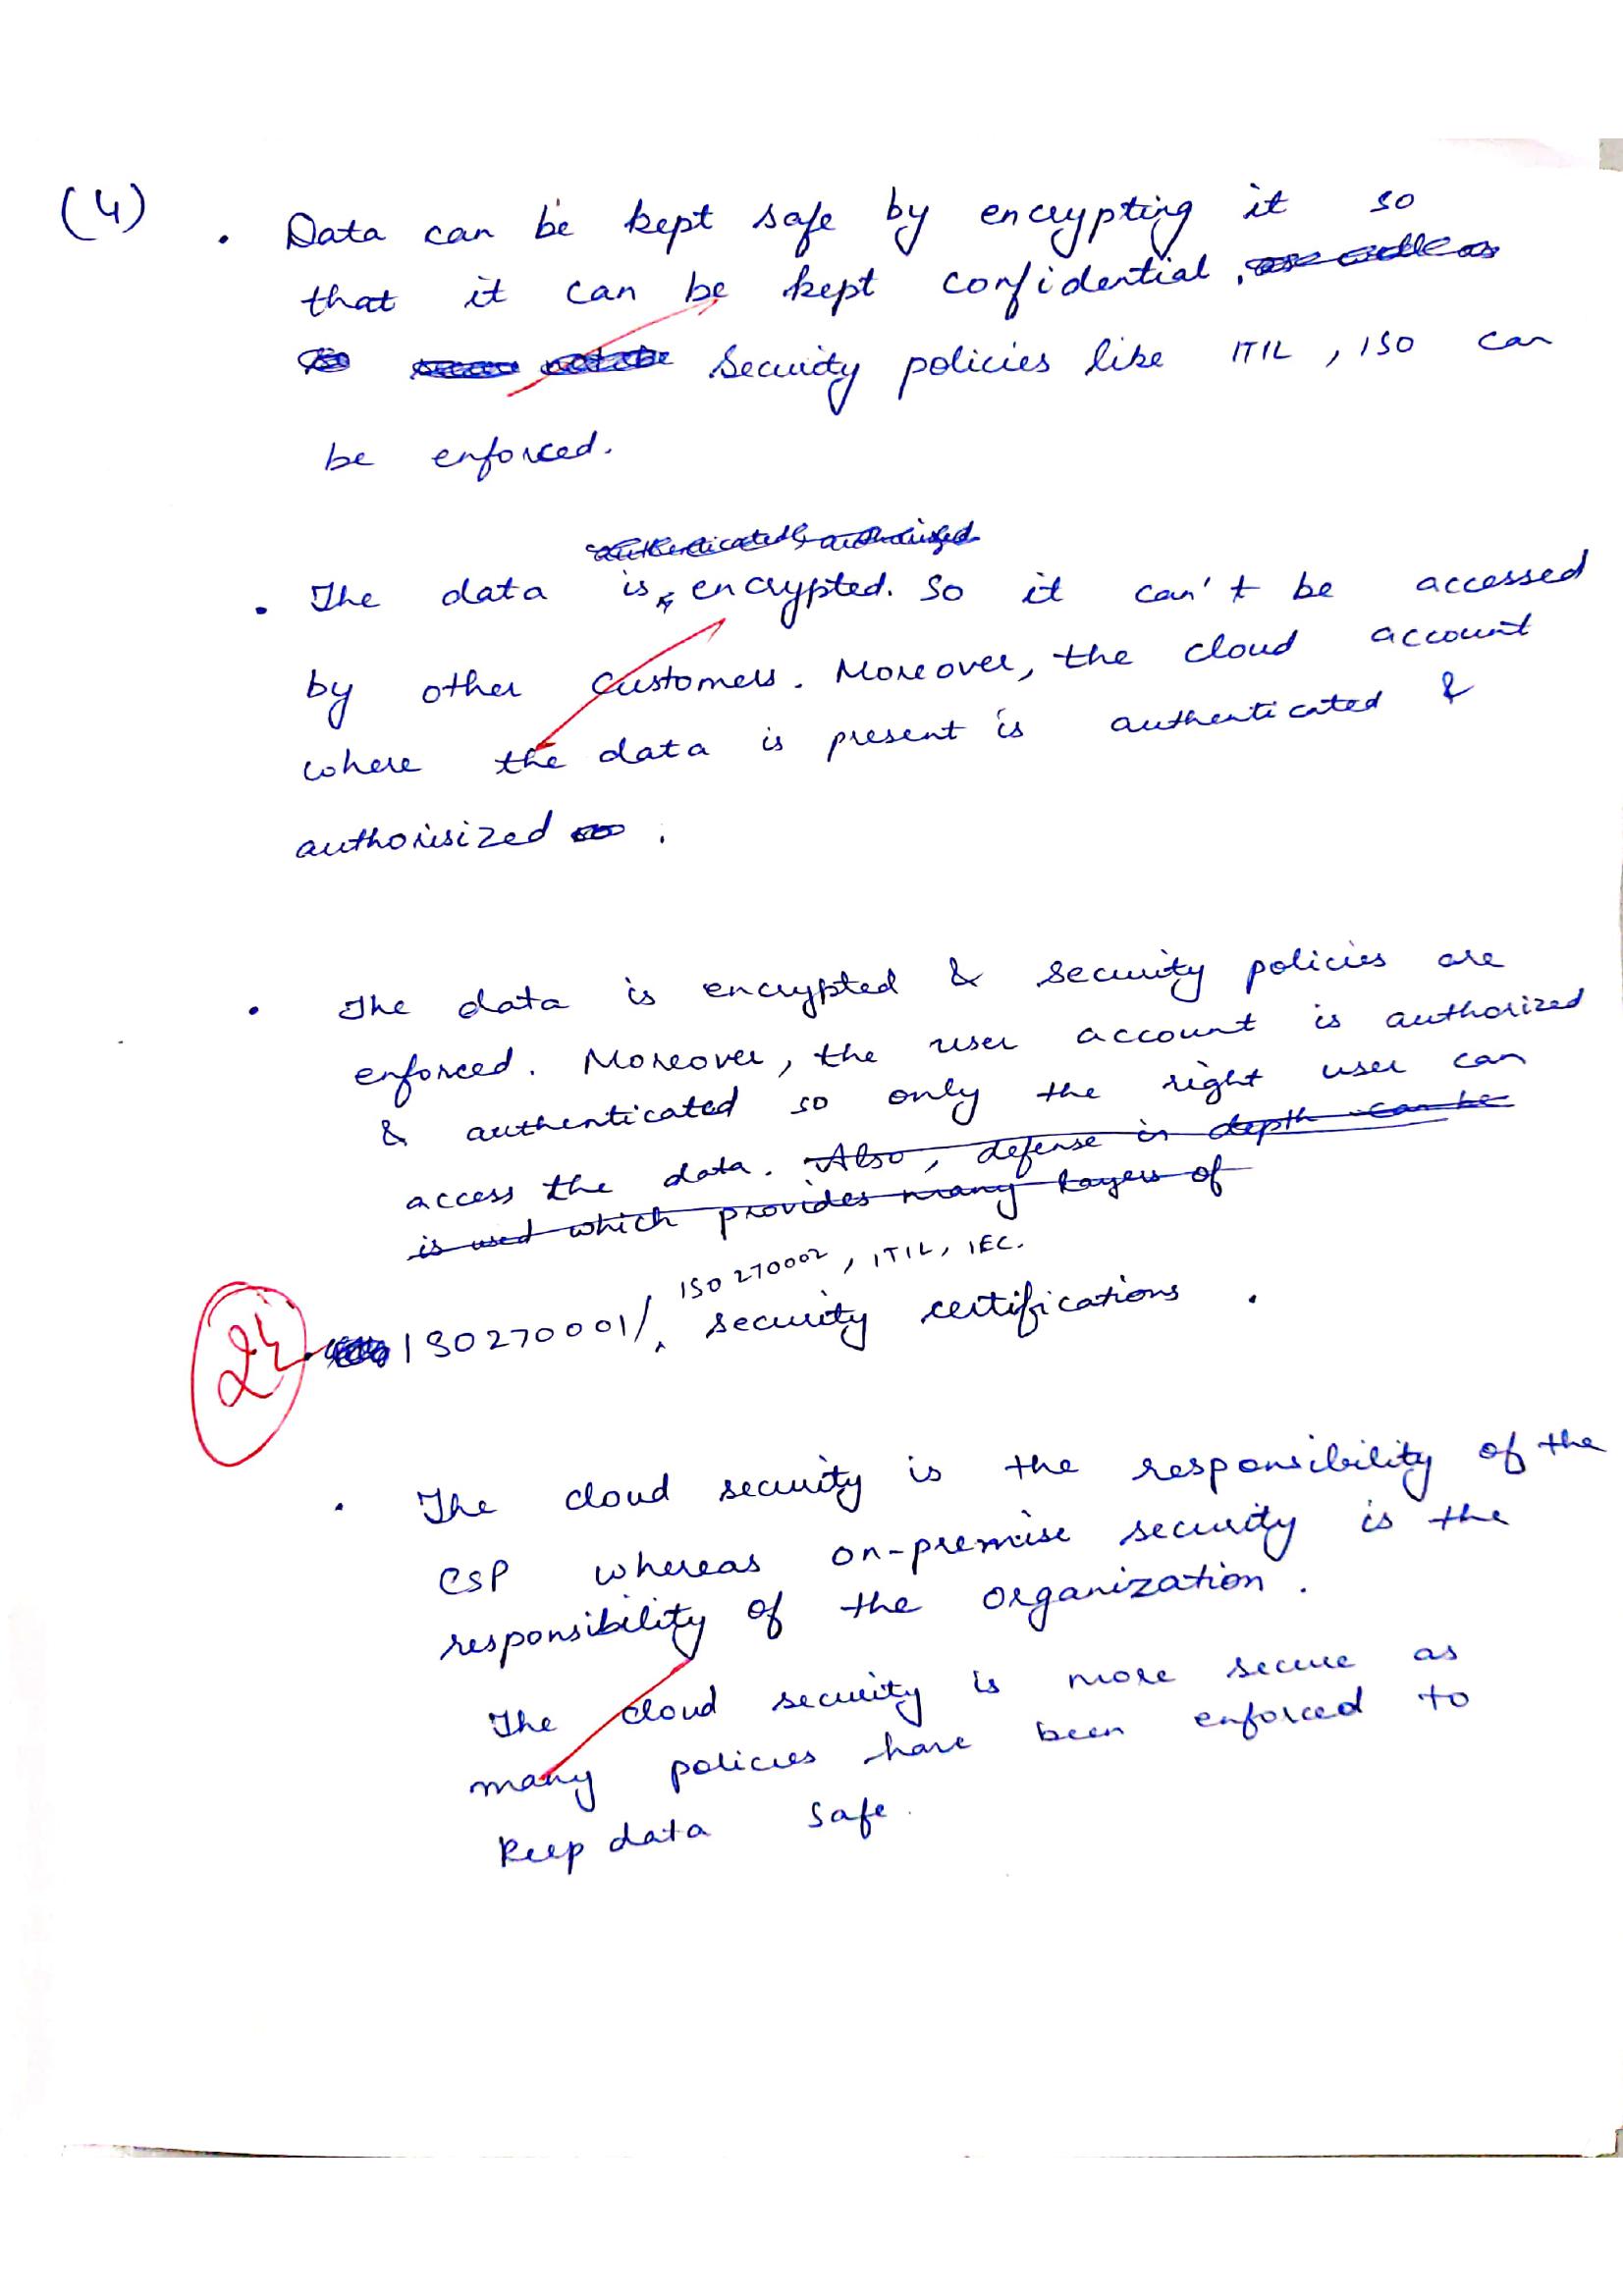 (4)
. Data can be kept safe by encrypting it so
that it can be kept confidential, as well as
Security policies like ITIL, ISO can
be enforced.
authenticated & authorized
. The data is encrypted. So it can't be accessed
by other customers. Moreover, the cloud account
where the data is present is authenticated &
authorisized .
. The data is encrypted & security policies are
enforced. Moreover, the user account is authorized
& authenticated so only the right user can
access the data. Also, defense in depth can be
is used which provides many layers of
ISO 270002, ITIL, IEC.
. ISO270001/ security certifications .
. The cloud security is the responsibility of the
CSP whereas on-premise security is the
responsibility of the organization.
The cloud security is more secure as
many policies have been enforced to
keep data safe.